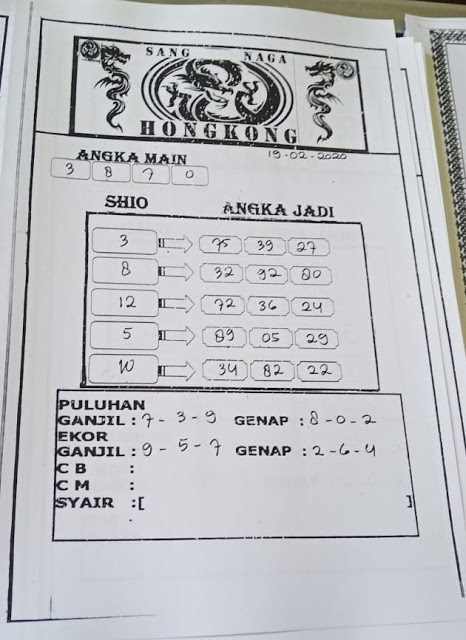 SANG NAGA
HONGKONG
19-02-2020
ANGKA MAIN
3 8 7 0
SHIO ANGKA JADI
3 75 39 27
8 32 92 80
12 72 36 24
5 89 05 29
10 34 82 22
PULUHAN
GANJIL : 7 - 3 - 9 GENAP : 8 - 0 - 2
EKOR
GANJIL : 9 - 5 - 7 GENAP : 2 - 6 - 4
C B :
C M :
SYAIR :[ ]